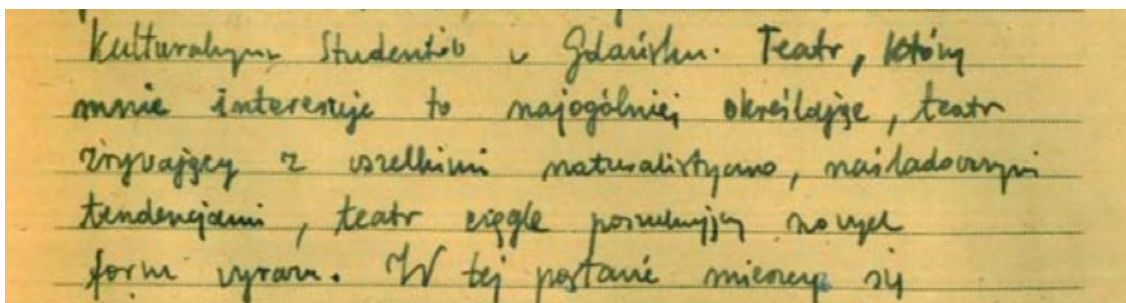 Kulturalnym Studentów w Gdańsku. Teatr, który
mnie interesuje to najogólniej określając, teatr
zrywający z wszelkimi naturalistyczno, naśladowczymi
tendencjami, teatr ciągle poszukujący nowych
form wyrazu. W tej postawie mieszczę się